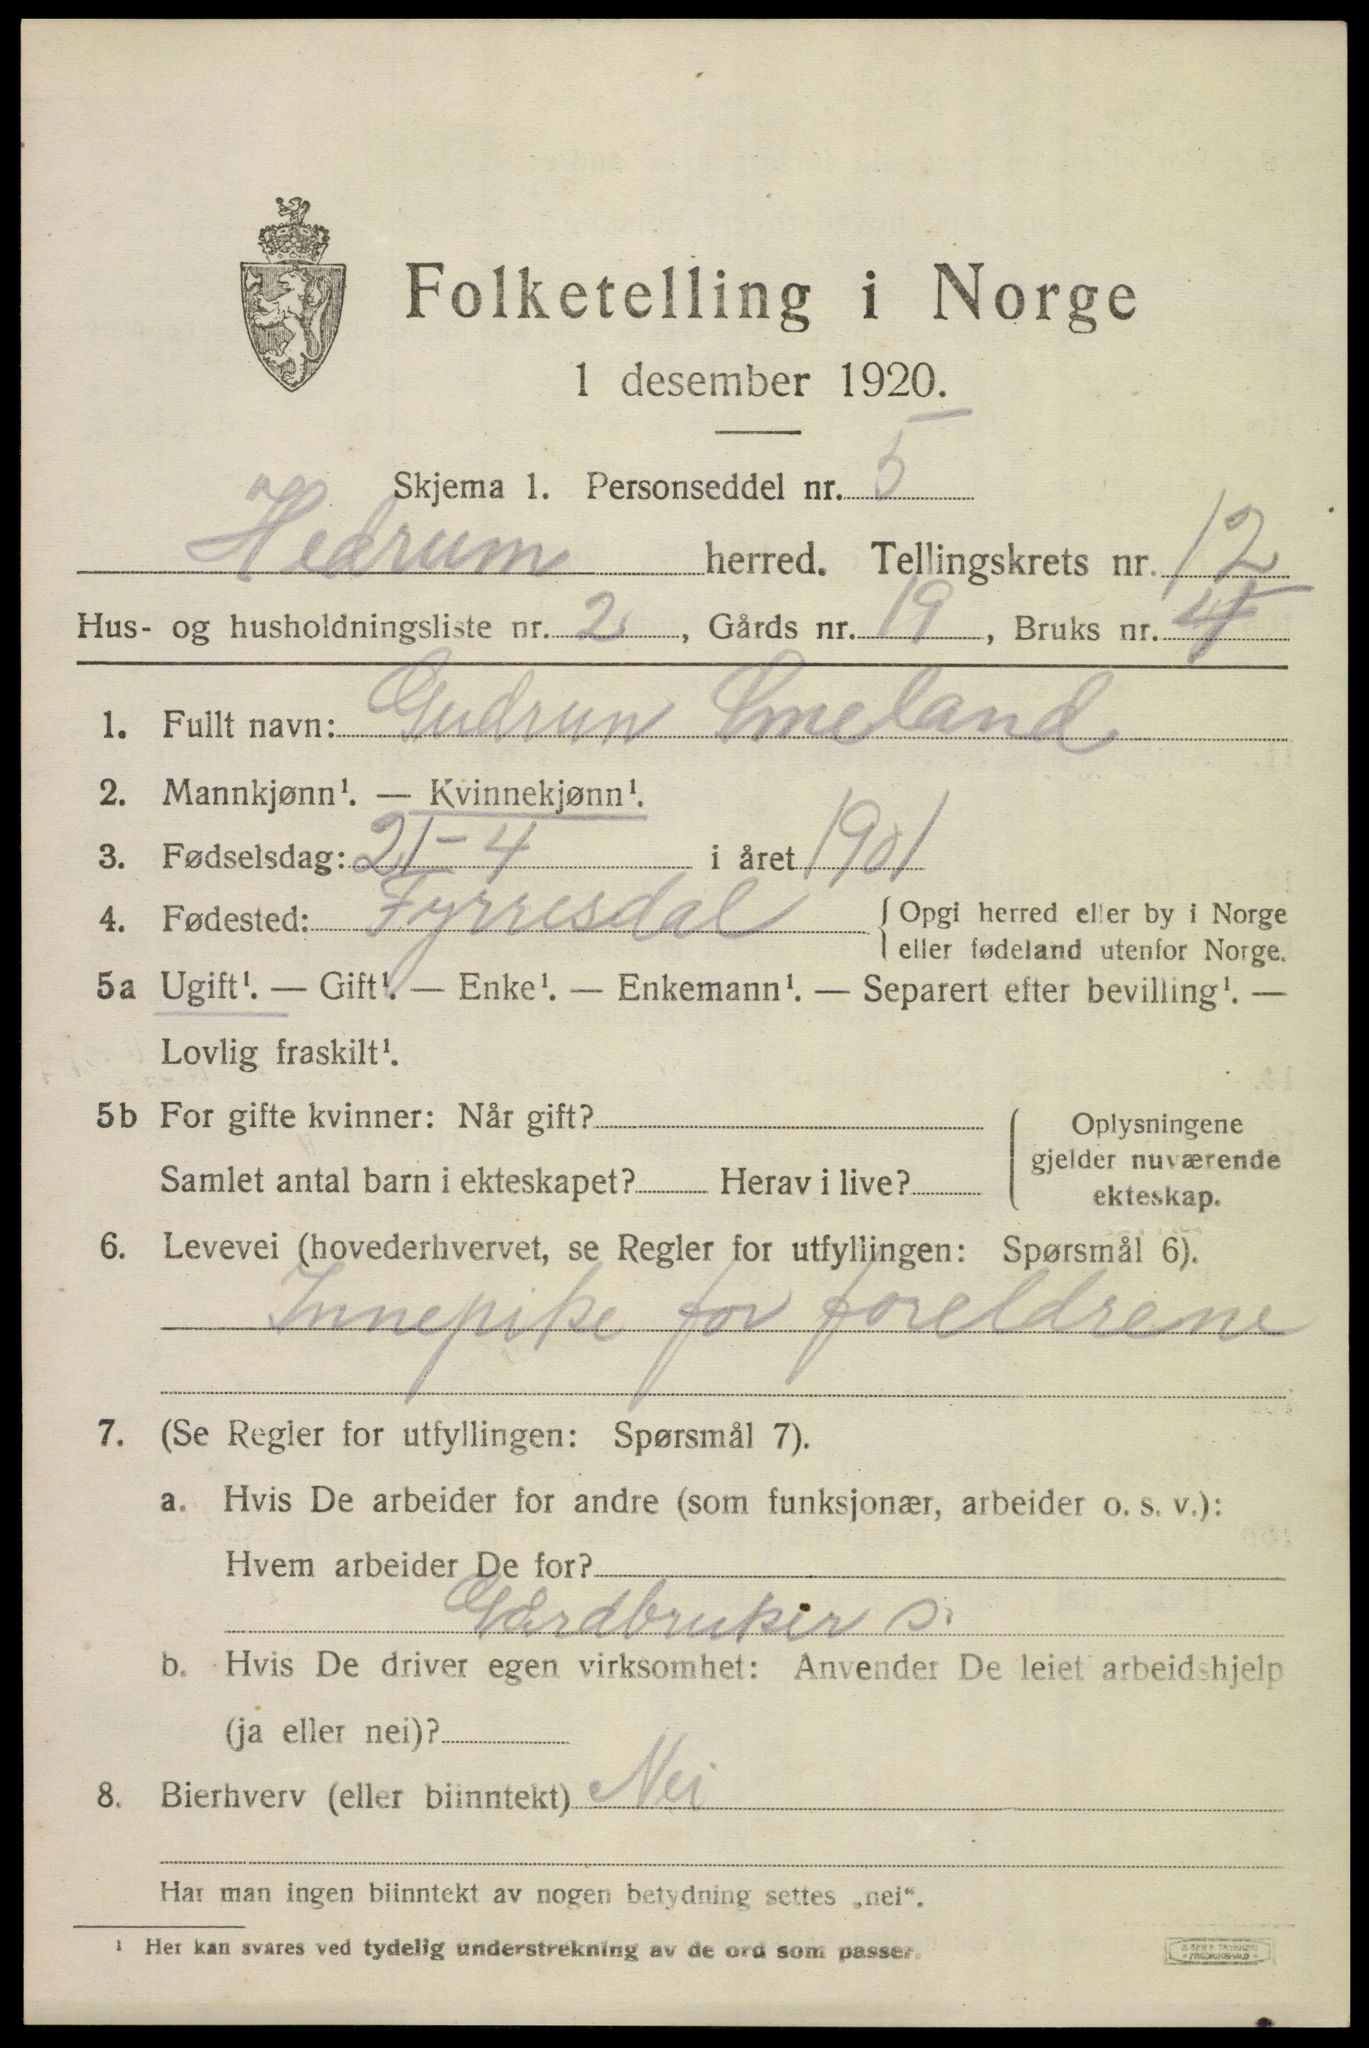 Folketelling i Norge
1 desember 1920.
Skjema 1. Personseddel nr. 5
Hedrum herred. Tellingskrets nr. 12
Hus- og husholdningsliste nr. 2, Gårds nr. 19, Bruks nr. 4
1. Fullt navn: Gudrun Smeland
2. Mannkjønn¹. — Kvinnekjønn¹.
3. Fødselsdag: 21-4 i året 1901
4. Fødested: Fyrresdal { Opgi herred eller by i Norge
eller fødeland utenfor Norge.
5a Ugift¹. — Gift¹. — Enke¹. — Enkemann¹. — Separert efter bevilling¹. —
Lovlig fraskilt¹.
5b For gifte kvinner: Når gift? Oplysningene
gjelder nuværende
Samlet antal barn i ekteskapet? Herav i live? ekteskap.
6. Levevei (hovederhvervet, se Regler for utfyllingen: Spørsmål 6).
Innepike for foreldrene
7. (Se Regler for utfyllingen: Spørsmål 7).
a. Hvis De arbeider for andre (som funksjonær, arbeider o. s. v.):
Hvem arbeider De for?
Gardbruker S.
b. Hvis De driver egen virksomhet: Anvender De leiet arbeidshjelp
(ja eller nei)?
8. Bierhverv (eller biinntekt) Nei
Har man ingen biinntekt av nogen betydning settes „nei“.
¹ Her kan svares ved tydelig understrekning av de ord som passer.